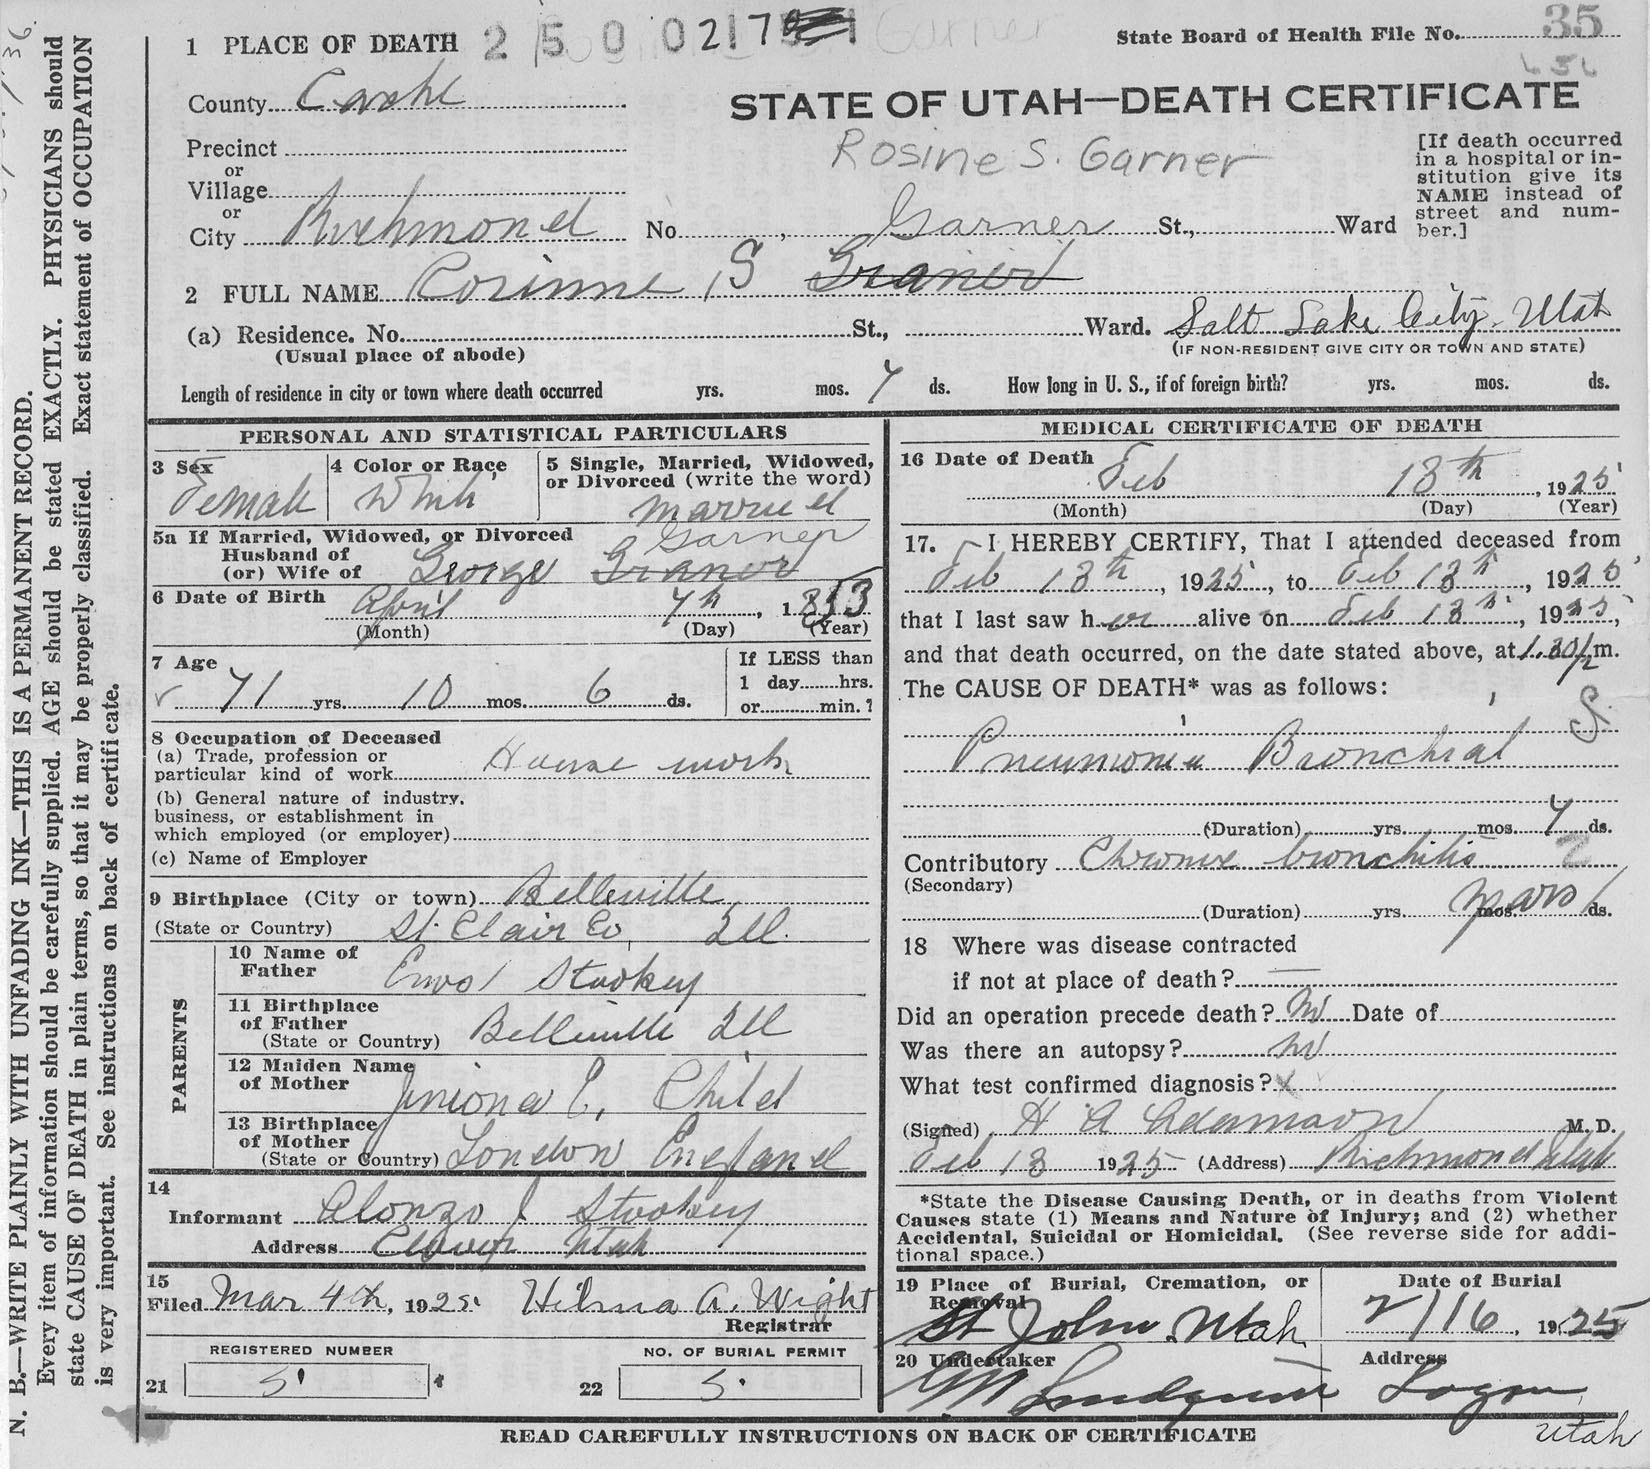 1 PLACE OF DEATH 2500217
State Board of Health File No. 35
County Cache
STATE OF UTAH—DEATH CERTIFICATE
Rosine S. Garner
Precinct
or
Village
or
City Richmond No. , Garner St., Ward
[If death occurred
in a hospital or in-
stitution give its
NAME instead of
street and num-
ber.]
2 FULL NAME Corinne S Granor
(a) Residence. No. St., Ward. Salt Lake City, Utah
(Usual place of abode) (IF NON-RESIDENT GIVE CITY OR TOWN AND STATE)
Length of residence in city or town where death occurred yrs. mos. 7 ds. How long in U. S., if of foreign birth? yrs. mos. ds.
PERSONAL AND STATISTICAL PARTICULARS
3 Sex 4 Color or Race 5 Single, Married, Widowed,
or Divorced (write the word)
Female White married
5a If Married, Widowed, or Divorced Garner
Husband of
(or) Wife of George Granor
6 Date of Birth April 7th, 1853
(Month) (Day) (Year)
7 Age If LESS than
1 day hrs.
or min.?
71 yrs. 10 mos. 6 ds.
8 Occupation of Deceased
(a) Trade, profession or
particular kind of work House work
(b) General nature of industry,
business, or establishment in
which employed (or employer)
(c) Name of Employer
9 Birthplace (City or town) Belleville
(State or Country) St. Clair Co, Ill.
PARENTS
10 Name of
Father Enos Stookey
11 Birthplace
of Father
(State or Country) Belleville Ill
12 Maiden Name
of Mother Jemima E. Child
13 Birthplace
of Mother
(State or Country) London England
14
Informant Alonzo J Stookey
Address Clover Utah
15
Filed Mar 4th, 1925. Hilma A. Wight
Registrar
REGISTERED NUMBER NO. OF BURIAL PERMIT
21 5 22 5
MEDICAL CERTIFICATE OF DEATH
16 Date of Death Feb 13th, 1925
(Month) (Day) (Year)
17. I HEREBY CERTIFY, That I attended deceased from
Feb 13th, 1925, to Feb 13th, 1925
that I last saw her alive on Feb 13th, 1925,
and that death occurred, on the date stated above, at 1.30 p m.
The CAUSE OF DEATH* was as follows:
Pneumonia Bronchial
(Duration) yrs. mos. 7 ds.
Contributory Chronic bronchitis
(Secondary)
(Duration) yrs. mos. years ds.
18 Where was disease contracted
if not at place of death? —
Did an operation precede death? no Date of
Was there an autopsy? no
What test confirmed diagnosis? x
(Signed) H A Adamson M. D.
Feb 13 1925 (Address) Richmond Utah
*State the Disease Causing Death, or in deaths from Violent
Causes state (1) Means and Nature of Injury; and (2) whether
Accidental, Suicidal or Homicidal. (See reverse side for addi-
tional space.)
19 Place of Burial, Cremation, or
Removal Date of Burial
St John Utah 2/16, 1925
20 Undertaker Address
GM Lindquist Logan
Utah
READ CAREFULLY INSTRUCTIONS ON BACK OF CERTIFICATE
N. B.—WRITE PLAINLY WITH UNFADING INK—THIS IS A PERMANENT RECORD.
Every item of information should be carefully supplied. AGE should be stated EXACTLY. PHYSICIANS should
state CAUSE OF DEATH in plain terms, so that it may be properly classified. Exact statement of OCCUPATION
is very important. See instructions on back of certificate.